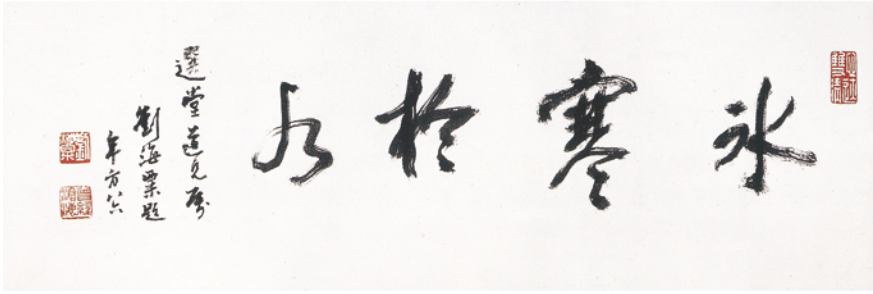 冰寒於水
選堂道兄属
劉海粟題
年方八六